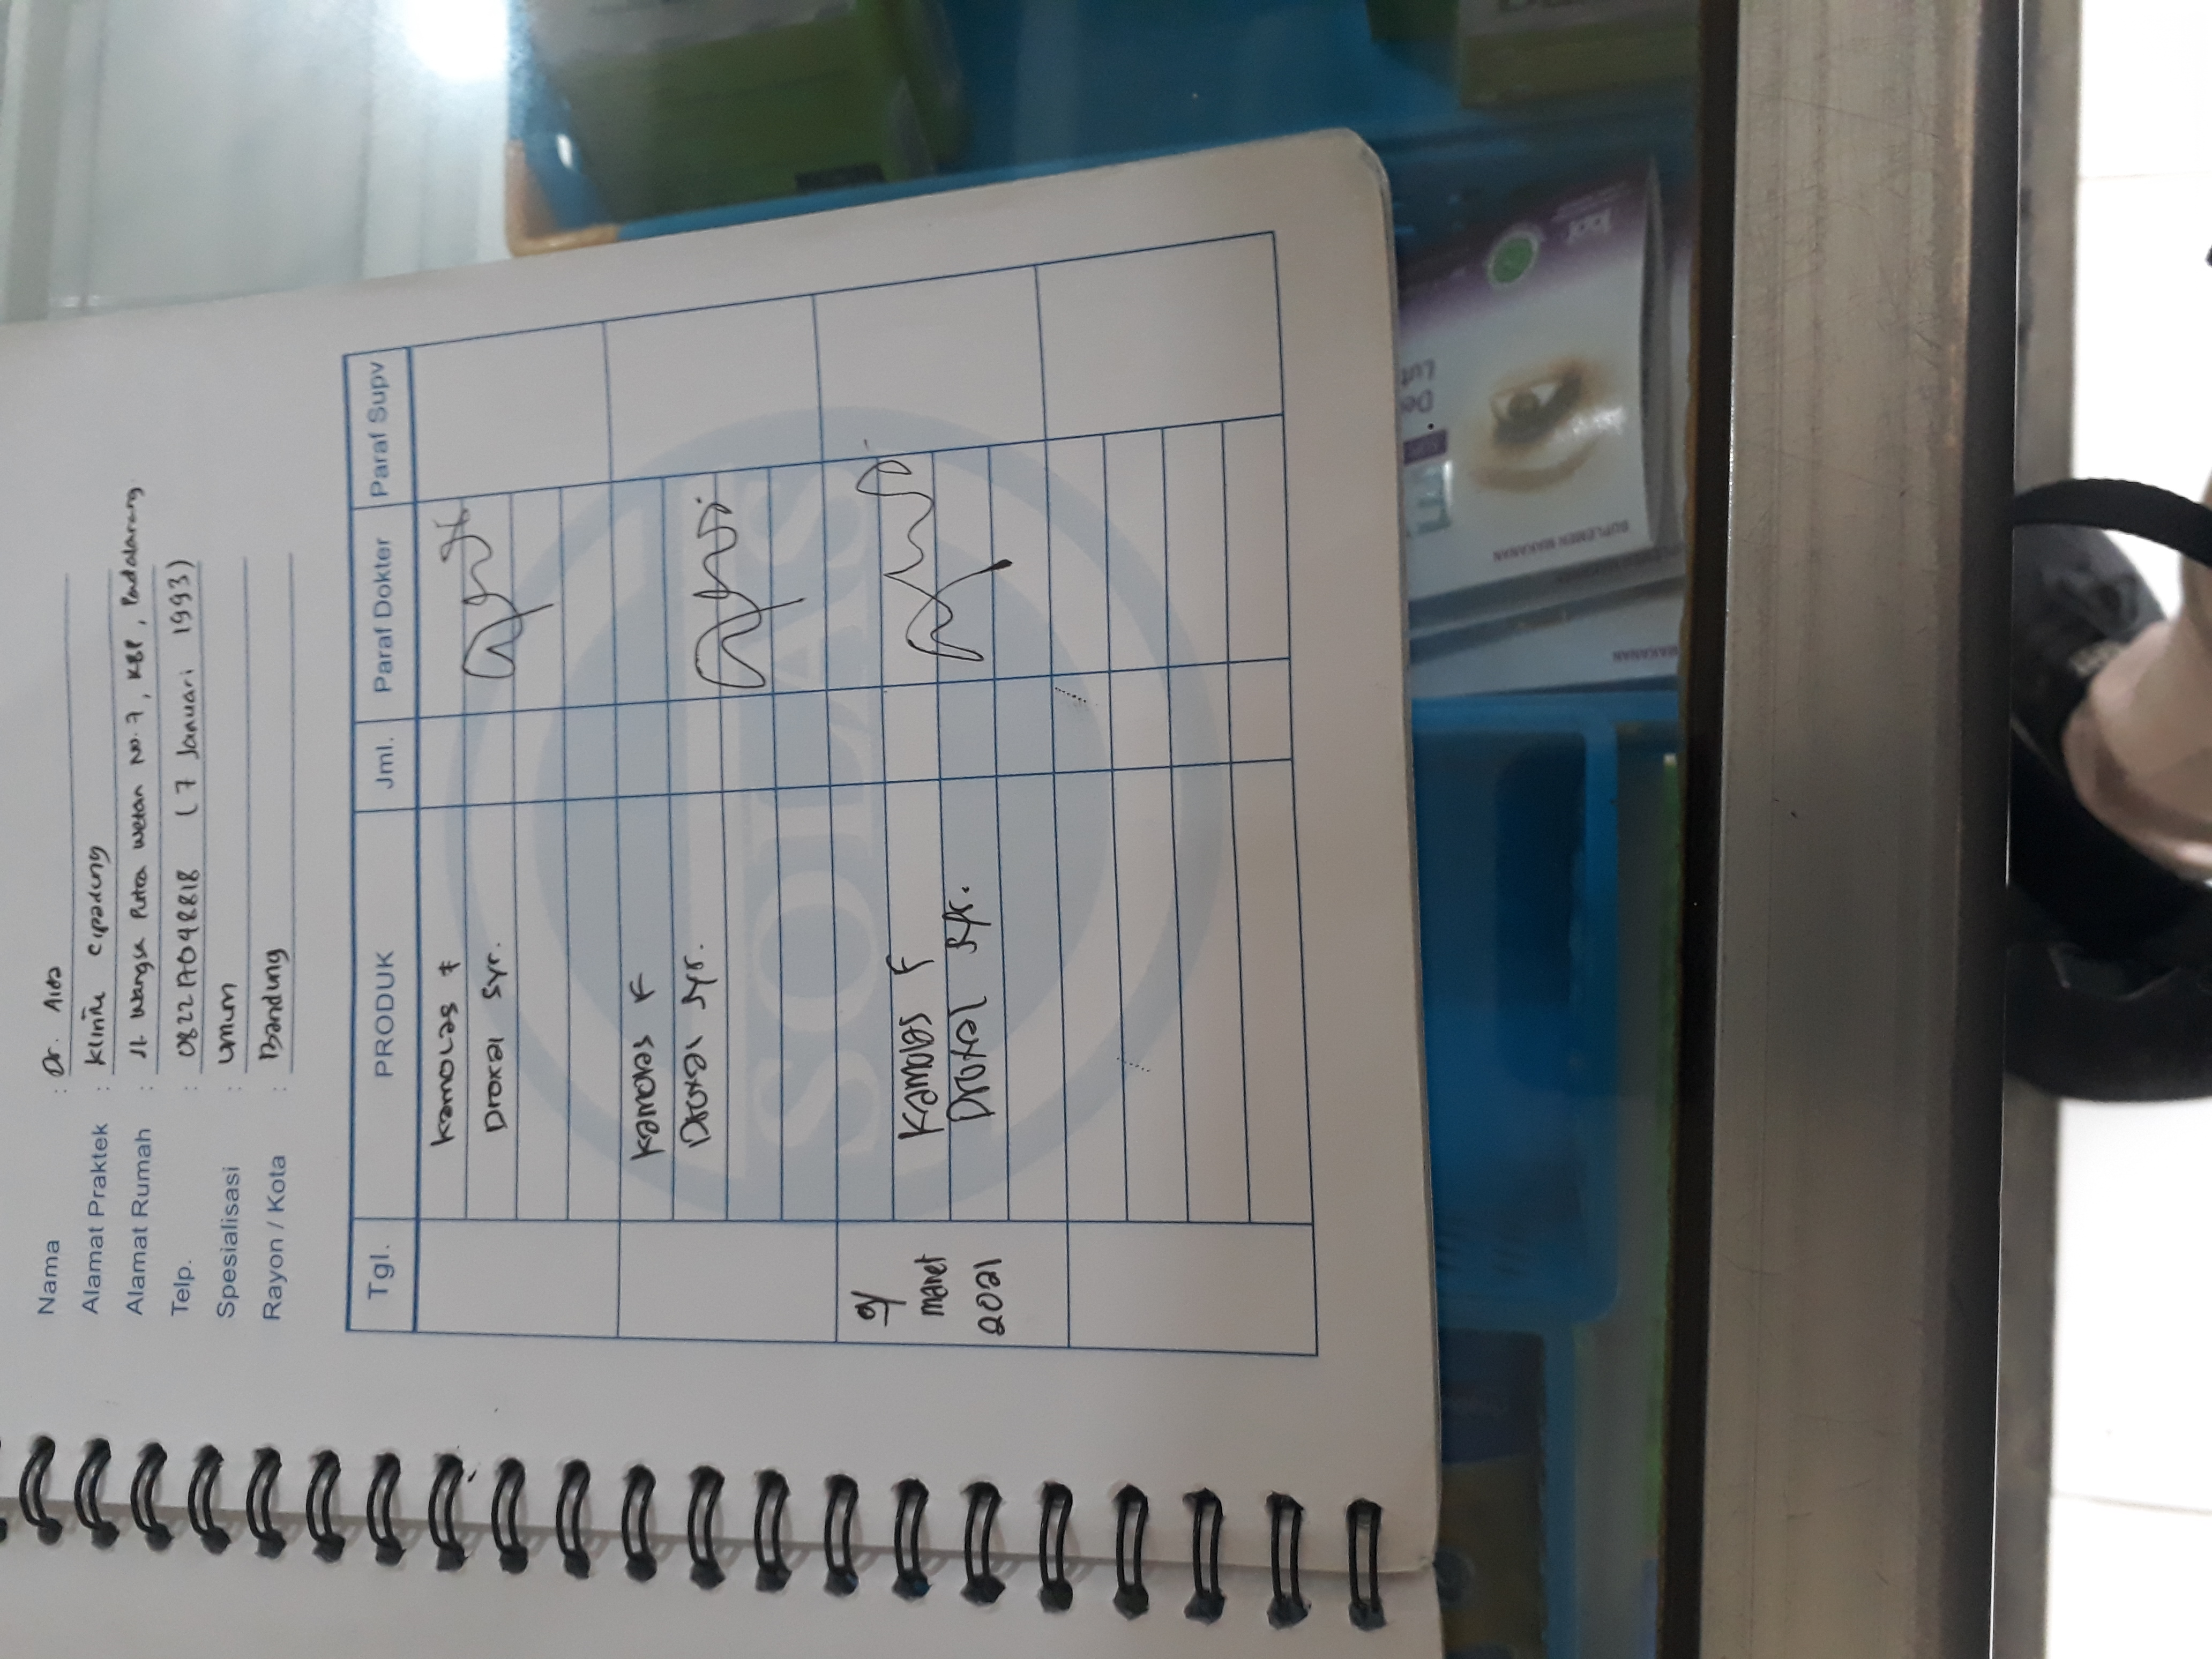 Nama : Dr. Aida
Alamat Praktek : Klinik Cipadung
Alamat Rumah : Jl. Wangsa Putra Wetan No. 7, KBP, Padalarang
Telp. : 082217048818 (7 Januari 1993)
Spesialisasi : Umum
Rayon / Kota : Bandung
Tgl. PRODUK Jml. Paraf Dokter Paraf Supv
Kamolas F
Droxal Syr.
Kamolas F
Droxal Syr.
SOLAS
9/
maret
2021
Kamolas F
Droxal Syr.
SUPLEMEN MAKANAN
MAKANAN